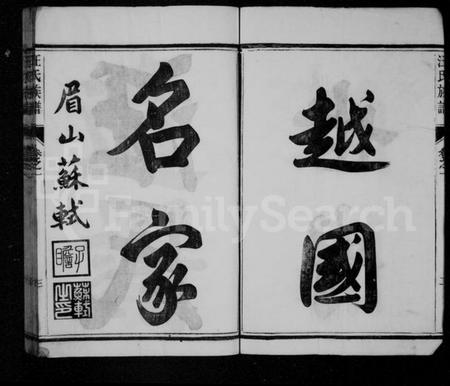 越國
名家
眉山蘇軾
子瞻
蘇軾之印
汪氏族譜
卷之一
汪氏族譜
卷之一
FamilySearch